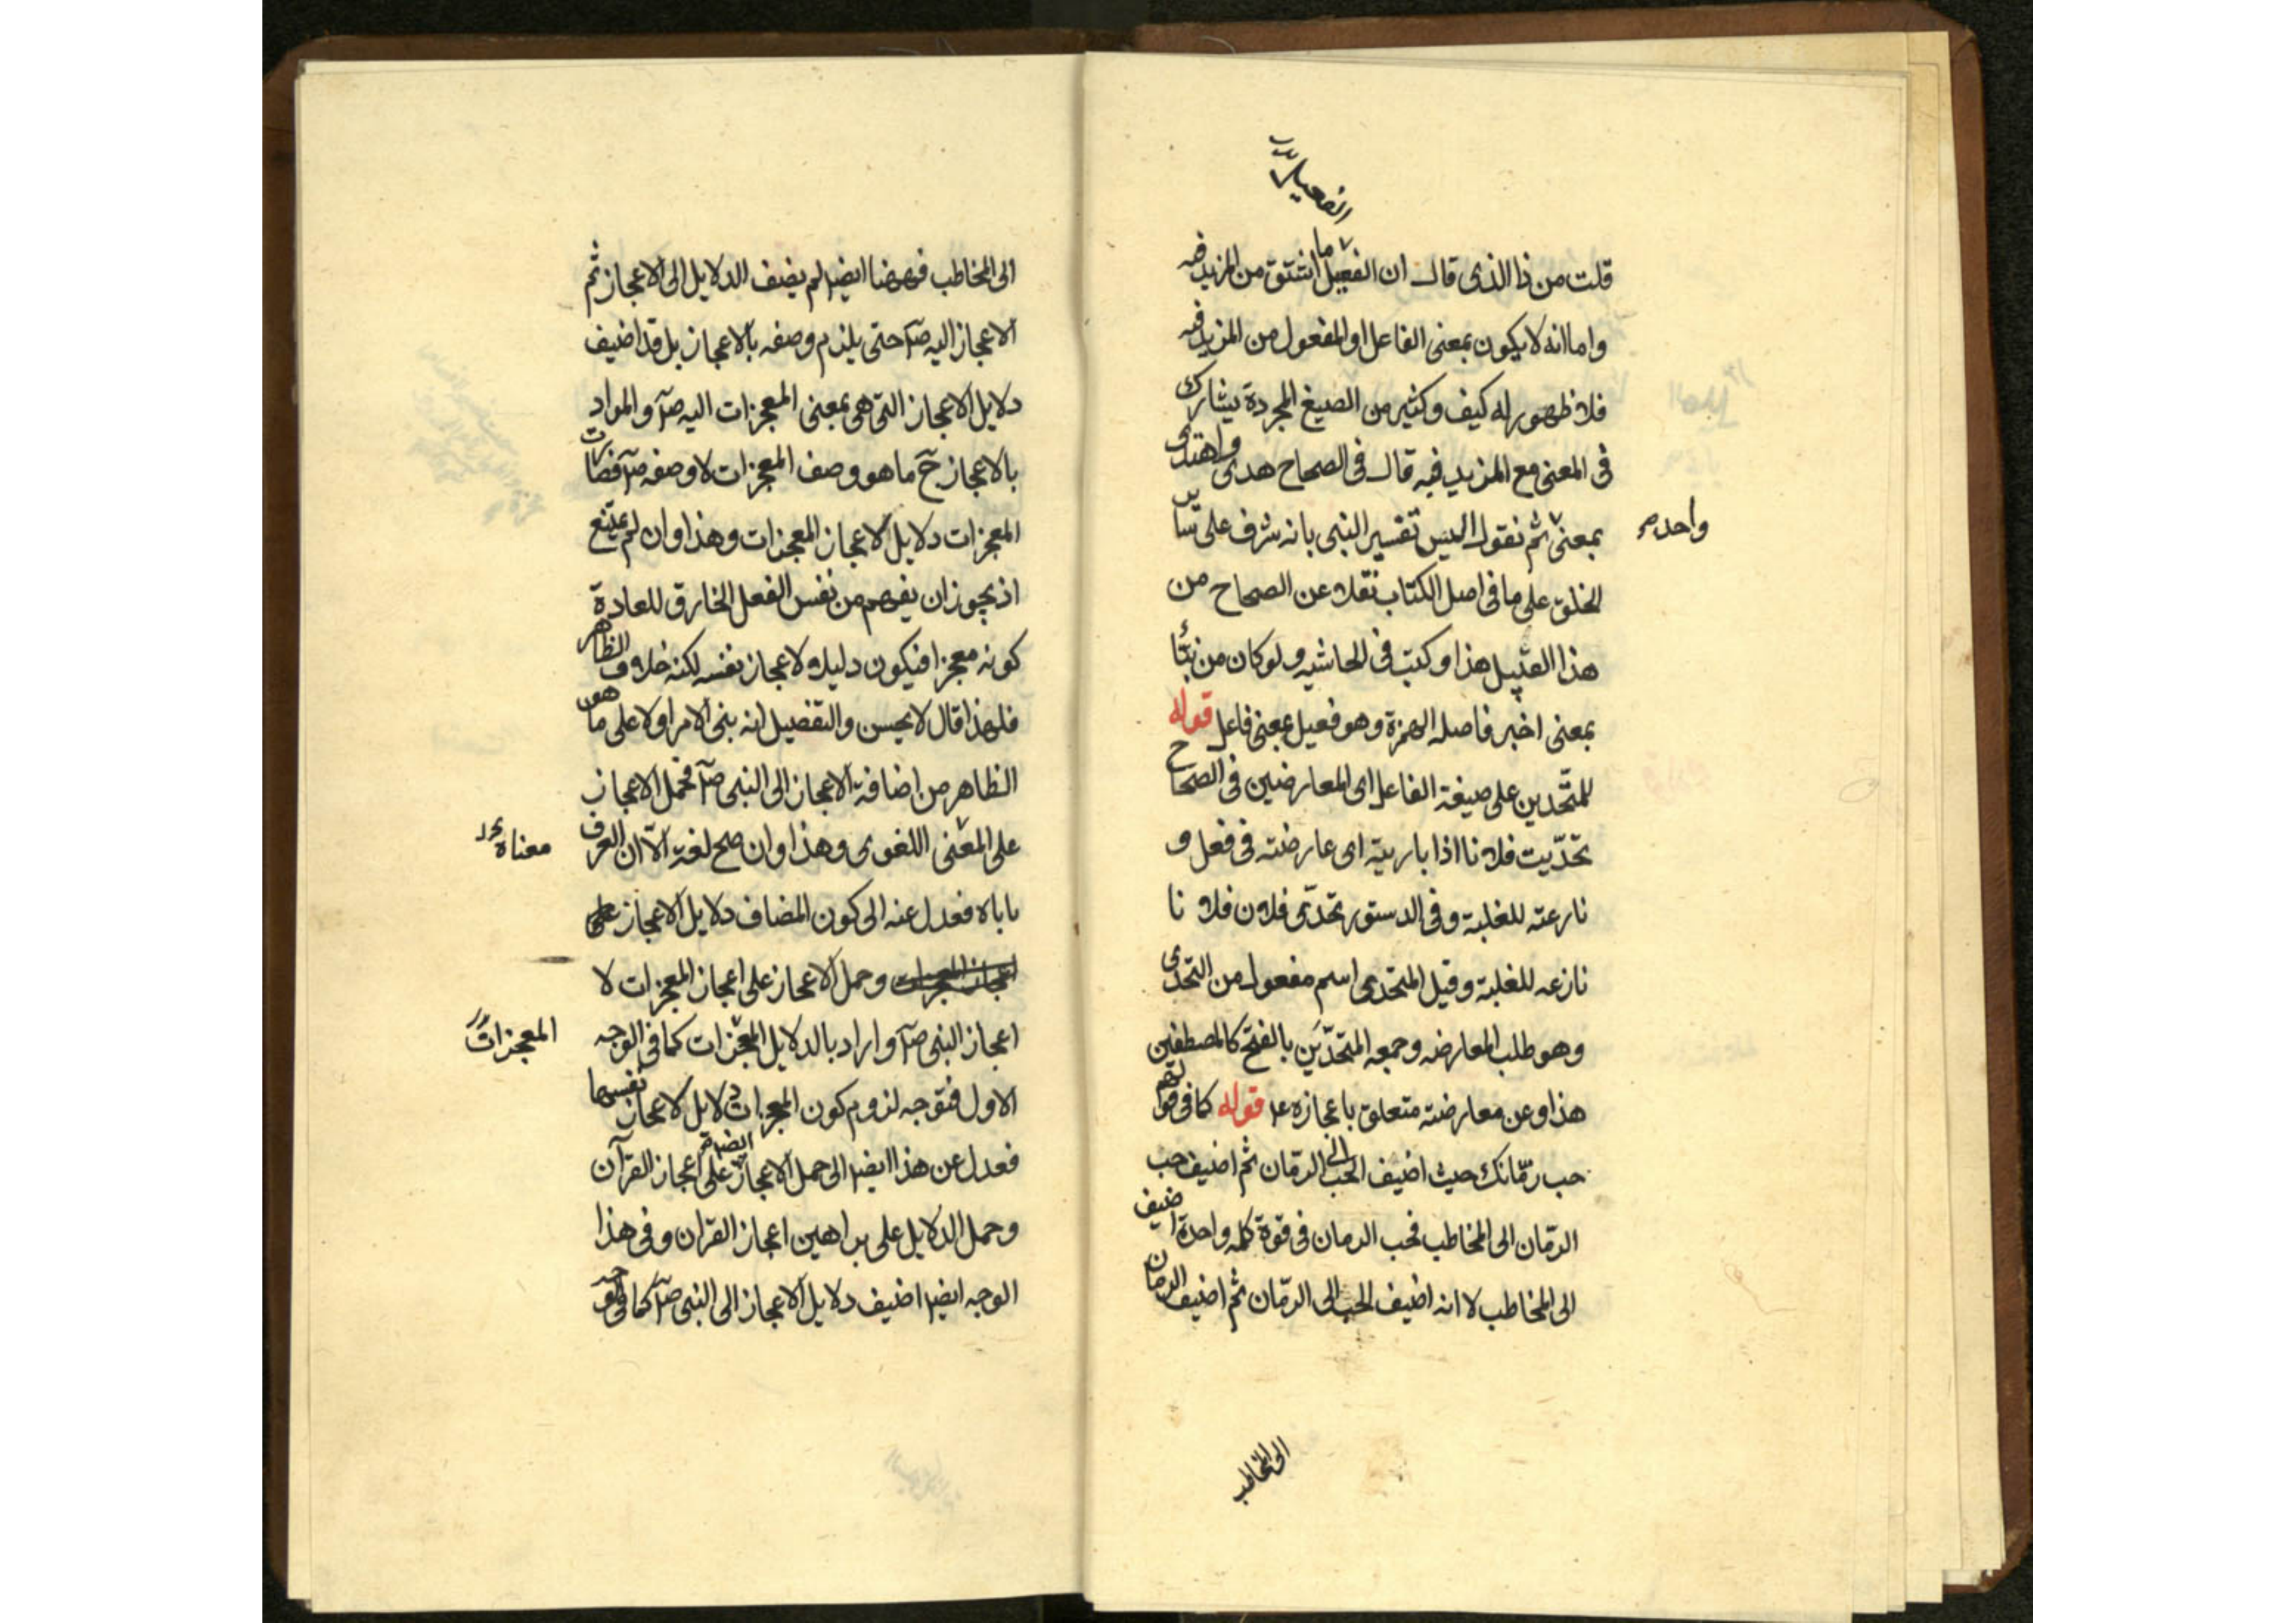 قلت من ذا الذى قال ان الفعيل ما اشتق من المزيد فيه
واما انه لا يكون بمعنى الفاعل او المفعول من المزيد فيه
فلا ظهور له كيف وكثير من الصيغ المجردة يشارك
فى المعنى مع المزيد فيه قال فى الصحاح هدى واهتدى
بمعنى ثم نقول اليس تفسير النبى بانه شرف على سائر
واحد صح
الخلق على ما فى اصل الكتاب نقلا عن الصحاح من
هذا القبيل هذا وكتب فى الحاشيه ولو كان من نبأ
بمعنى اخبر فاصله الهمزة وهو فعيل بمعنى فاعل قوله
للمتحّدين على صيغة الفاعل اى المعارضين فى الصحاح
تحدّيت فلانا اذا باريته اى عارضته فى فعل و
نازعته للغلبة وفى الدستور تحدّى فلان فلانا
نازعه للغلبة وقيل المتحدى اسم مفعول من التحدى
وهو طلب المعارضه وجمعه المتحدّين بالفتح كالمصطفين
هذا وعن معارضته متعلق باعجازه قوله كما فى قولهم
حب رمّانك حيث اضيف الحب الى الرمّان ثم اضيف حب
الرمّان الى المخاطب فحب الرمان فى قوة كلمه واحدة اضيف
الى المخاطب لا انه اضيف الحب الى الرمّان ثم اضيف الرمان
الى المخاطب
الى المخاطب فههنا ايضا لم يضف الدلايل الى الاعجاز ثم
الاعجاز اليه صلآ حتى يلزم وصفه بالاعجاز بل قد اضيف
دلايل الاعجاز التى هى بمعنى المعجزات اليه صلآ والمراد
بالاعجاز حَ ما هو وصف المعجزات لا وصفه صلآ فصارت
المعجزات دلايل لاعجاز المعجزات وهذا وان لم يمتنع
اذ يجوز ان يفهم من نفس الفعل الخارق للعادة
كونه معجزا فيكون دليلا لاعجاز نفسه لكنه خلاف الظاهر
فلهذا قال لا يحسن والتفصيل انه بنى الامر اولا على ما هو
الظاهر من اضافة الاعجاز الى النبى صلآ فحمل الاعجاز
على المعنى اللغوى وهذا وان صح لغة الّا ان العرف
معناه
ياباه فعدل عنه الى كون المضاف دلايل الاعجاز على
اعجاز المعجزات وحمل الاعجاز على اعجاز المعجزات لا
اعجاز النبى صلآ واراد بالدلايل المعجزات كما فى الوجه
المعجزات
الاول فتوجه لزوم كون المعجزات دلايل لاعجاز نفسها
فعدل عن هذا ايضا الى حمل الاعجاز ايضا على اعجاز القرآن
وحمل الدلايل على براهين اعجاز القران وفى هذا
الوجه ايضا اضيف دلايل الاعجاز الى النبى صلآ كما فى